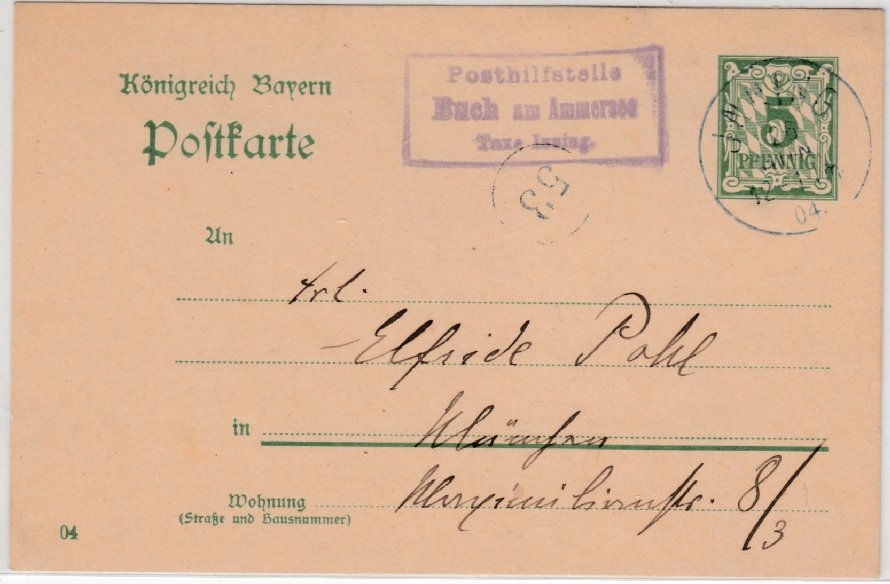 Königreich Bayern
Postkarte
Posthilfstelle
Buch am Ammersee
Taxe Inning.
5
PFENNIG
04.
53
An
Frl.
Elfriede Pohl
in München
Maximilianstr. 8/3
Wohnung
(Straße und Hausnummer)
04